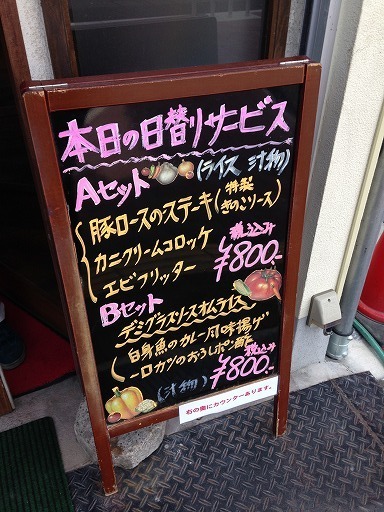 本日の日替りサービス
Aセット (ライス 汁物)
豚ロースのステーキ(特製きのこソース)
カニクリームコロッケ
エビフリッター
税込み
¥800.-
Bセット
デミグラスソースオムライス
白身魚のカレー風味揚げ
一口カツのおろしポン酢
(汁物)
税込み
¥800.-
右の奥にカウンターあります。